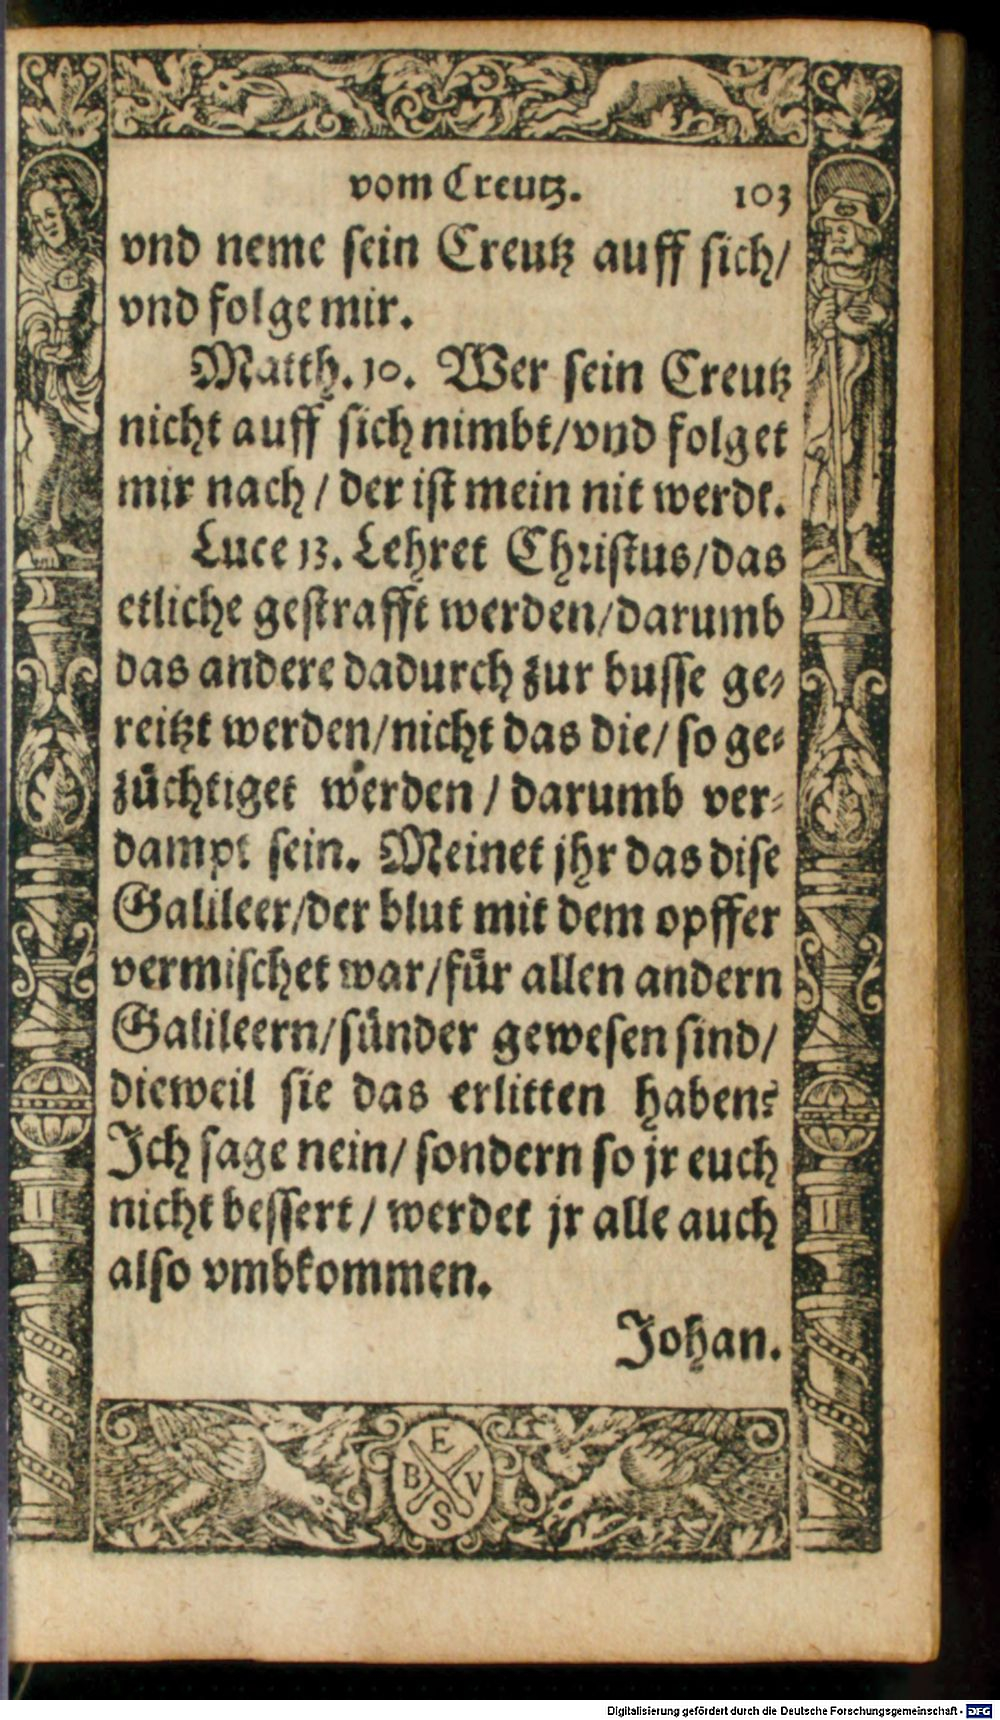 vom Creutz. 103
vnd neme sein Creutz auff sich/
vnd folge mir.
Matth. 10. Wer sein Creutz
nicht auff sich nimbt/vnd folget
mir nach / der ist mein nit werdt.
Luce 13. Lehret Christus/das
etliche gestrafft werden/darumb
das andere dadurch zur busse ge-
reitzt werden/nicht das die/ so ge-
züchtiget werden / darumb ver-
dampt sein. Meinet jhr das dise
Galileer/der blut mit dem opffer
vermischet war/für allen andern
Galileern/sünder gewesen sind/
dieweil sie das erlitten haben?
Ich sage nein/ sondern so jr euch
nicht bessert / werdet jr alle auch
also vmbkommen.
Johan.
E
B V
S
Digitalisierung gefördert durch die Deutsche Forschungsgemeinschaft - DFG